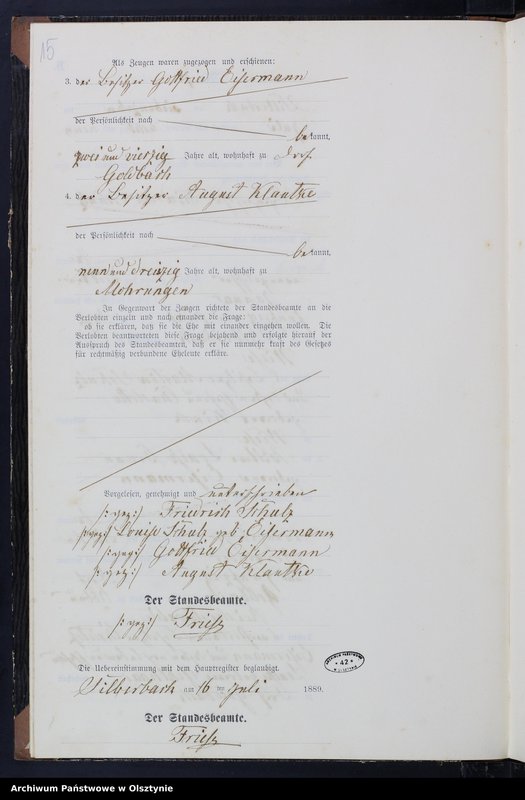 15
Als Zeugen waren zugezogen und erschienen:
3. der Besitzer Gottfried Eisermann
der Persönlichkeit nach
bekannt,
zwei und vierzig Jahre alt, wohnhaft zu Dorf
Goldbach
4. der Besitzer August Klautke
der Persönlichkeit nach
bekannt,
neun und dreizig Jahre alt, wohnhaft zu
Mohrungen
In Gegenwart der Zeugen richtete der Standesbeamte an die
Verlobten einzeln und nach einander die Frage:
ob sie erklären, daß sie die Ehe mit einander eingehen wollen. Die
Verlobten beantworteten diese Frage bejahend und erfolgte hierauf der
Ausspruch des Standesbeamten, daß er sie nunmehr kraft des Gesetzes
für rechtmäßig verbundene Eheleute erkläre.
Vorgelesen, genehmigt und unterschrieben
/: gez :/ Friedrich Schulz
/: gez :/ Louise Schulz geb Eisermann
/: gez :/ Gottfried Eisermann
/: gez :/ August Klautke
Der Standesbeamte.
/: gez :/ Friese
Die Uebereinstimmung mit dem Hauptregister beglaubigt.
Silberbach am 16 ten Juli 1889.
Der Standesbeamte.
Friese
ARCHIWUM PAŃSTWOWE
* 42 *
W OLSZTYNIE
Archiwum Państwowe w Olsztynie